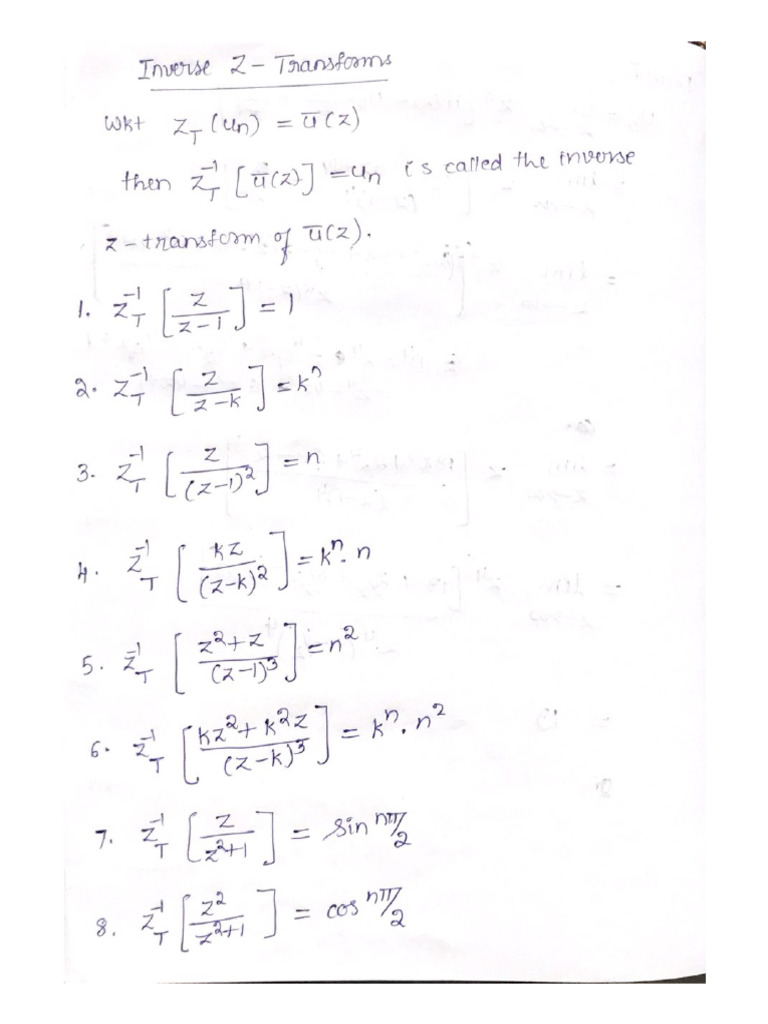 Inverse Z - Transforms
Wkt Z_T (u_n) = ū(z)
then Z_T^-1 [ū(z)] = u_n is called the inverse
z - transform of ū(z).
1. Z_T^-1 [z/(z-1)] = 1
2. Z_T^-1 [z/(z-k)] = k^n
3. Z_T^-1 [z/(z-1)^2] = n
4. Z_T^-1 [kz/(z-k)^2] = k^n. n
5. Z_T^-1 [(z^2+z)/(z-1)^3] = n^2
6. Z_T^-1 [(kz^2+k^2z)/(z-k)^3] = k^n. n^2
7. Z_T^-1 [z/(z^2+1)] = Sin nπ/2
8. Z_T^-1 [z^2/(z^2+1)] = cos nπ/2